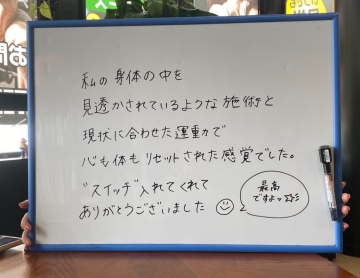 私の身体の中を
見透かされているような施術と
現状に合わせた運動で
心も体もリセットされた感覚でした。
"スイッチ"入れてくれて
ありがとうございました
最高
ですよッ